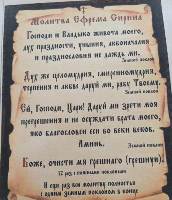 Молитва Ефрема Сирина
Господи и Владыко живота моего,
дух праздности, уныния, любоначалия
и празднословия не даждь ми.
Земной поклон
Дух же целомудрия, смиренномудрия,
терпения и любве даруй ми, рабу Твоему.
Земной поклон
Ей, Господи, Царю! Даруй ми зрети моя
прегрешения и не осуждати брата моего,
яко благословен еси во веки веков.
Аминь.
Земной поклон
Боже, очисти мя грешнаго (грешную).
12 раз с поясными поклонами
И еще раз всю молитву полностью
с одним земным поклоном в конце